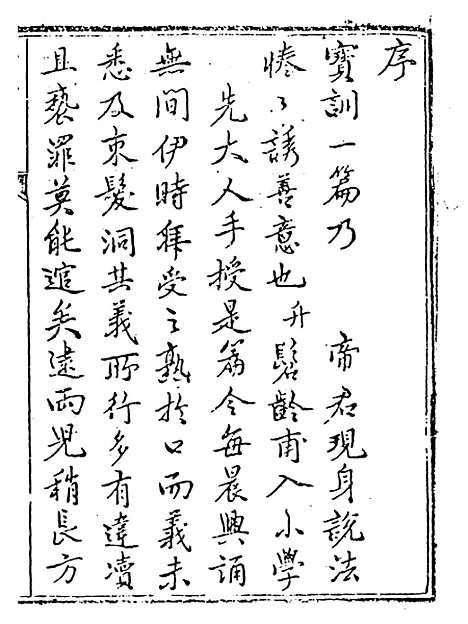 序
寶訓一篇乃 帝君現身說法
惓々誘善意也升髫齡甫入小學
先大人手授是篇令每晨興誦
無間伊時拜受之熟於口而義未
悉及束髮洞其義所行多有違瀆
且褻罪莫能逭矣逮兩兒稍長方